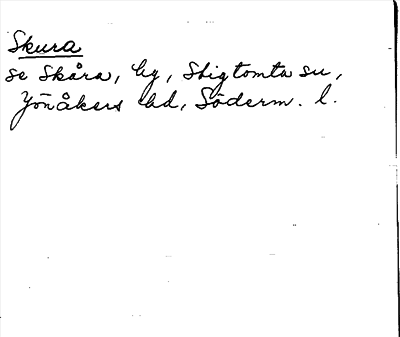 Skura
se Skåra, by, Stigtomta sn,
Jönåkers hd, Söderm. l.